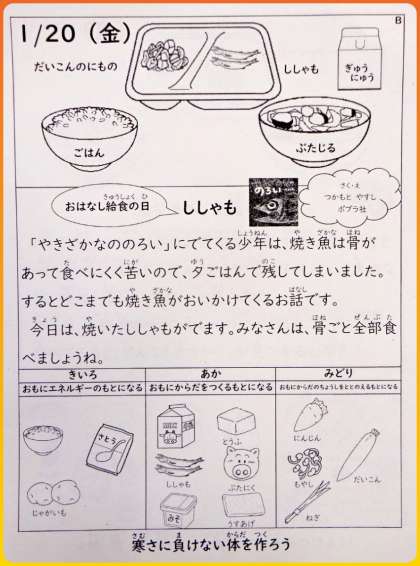 1/20 (金)
B
だいこんのにもの
ししゃも
ぎゅう
にゅう
ごはん
ぶたじる
おはなし給食の日
きゅうしょく ひ
ししゃも
のろい
さく・え
つかもと やすし
ポプラ社
「やきざかなののろい」にでてくる少年は、焼き魚は骨が
しょうねん や ざかな ほね
あって食べにくく苦いので、夕ごはんで残してしまいました。
た にが ゆう のこ
するとどこまでも焼き魚がおいかけてくるお話です。
や ざかな はなし
今日は、焼いたししゃもがでます。みなさんは、骨ごと全部食
きょう や ほね ぜんぶた
べましょうね。
きいろ
おもにエネルギーのもとになる
あか
おもにからだをつくるもとになる
みどり
おもにからだのちょうしをととのえるもとになる
さとう
じゃがいも
とうふ
ししゃも
ぶたにく
みそ
うすあげ
にんじん
もやし
だいこん
ねぎ
寒さに負けない体を作ろう
さむ ま からだ つく